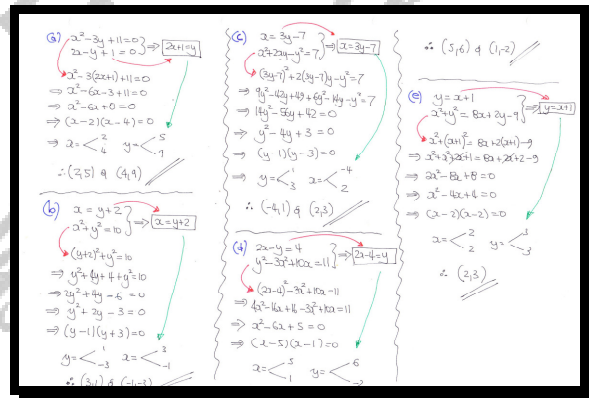 (a) x²-3y+11=0
2x-y+1=0 } ⇒ 2x+1=y
x²-3(2x+1)+11=0
⇒ x²-6x-3+11=0
⇒ x²-6x+8=0
⇒ (x-2)(x-4)=0
⇒ x=< 2 4 y=< 5 9
∴ (2,5) & (4,9)
(b) x=y+2
x²+y²=10 } ⇒ x=y+2
(y+2)²+y²=10
⇒ y²+4y+4+y²=10
⇒ 2y²+4y-6=0
⇒ y²+2y-3=0
⇒ (y-1)(y+3)=0
y=< 1 -3 x=< 3 -1
∴ (3,1) & (-1,-3)
(c) x=3y-7
x²+2xy-y²=7 } ⇒ x=3y-7
(3y-7)²+2(3y-7)y-y²=7
⇒ 9y²-42y+49+6y²-14y-y²=7
⇒ 14y²-56y+42=0
⇒ y²-4y+3=0
⇒ (y-1)(y-3)=0
⇒ y=< 1 3 x=< -4 2
∴ (-4,1) & (2,3)
(d) 2x-y=4
y²-3x²+10x=11 } ⇒ 2x-4=y
(2x-4)²-3x²+10x=11
⇒ 4x²-16x+16-3x²+10x=11
⇒ x²-6x+5=0
⇒ (x-5)(x-1)=0
x=< 5 1 y=< 6 -2
∴ (5,6) & (1,-2)
(e) y=x+1
x²+y²=8x+2y-9 } ⇒ y=x+1
x²+(x+1)²=8x+2(x+1)-9
⇒ x²+x²+2x+1=8x+2x+2-9
⇒ 2x²-8x+8=0
⇒ x²-4x+4=0
⇒ (x-2)(x-2)=0
x=< 2 2 y=< 3 3
∴ (2,3)